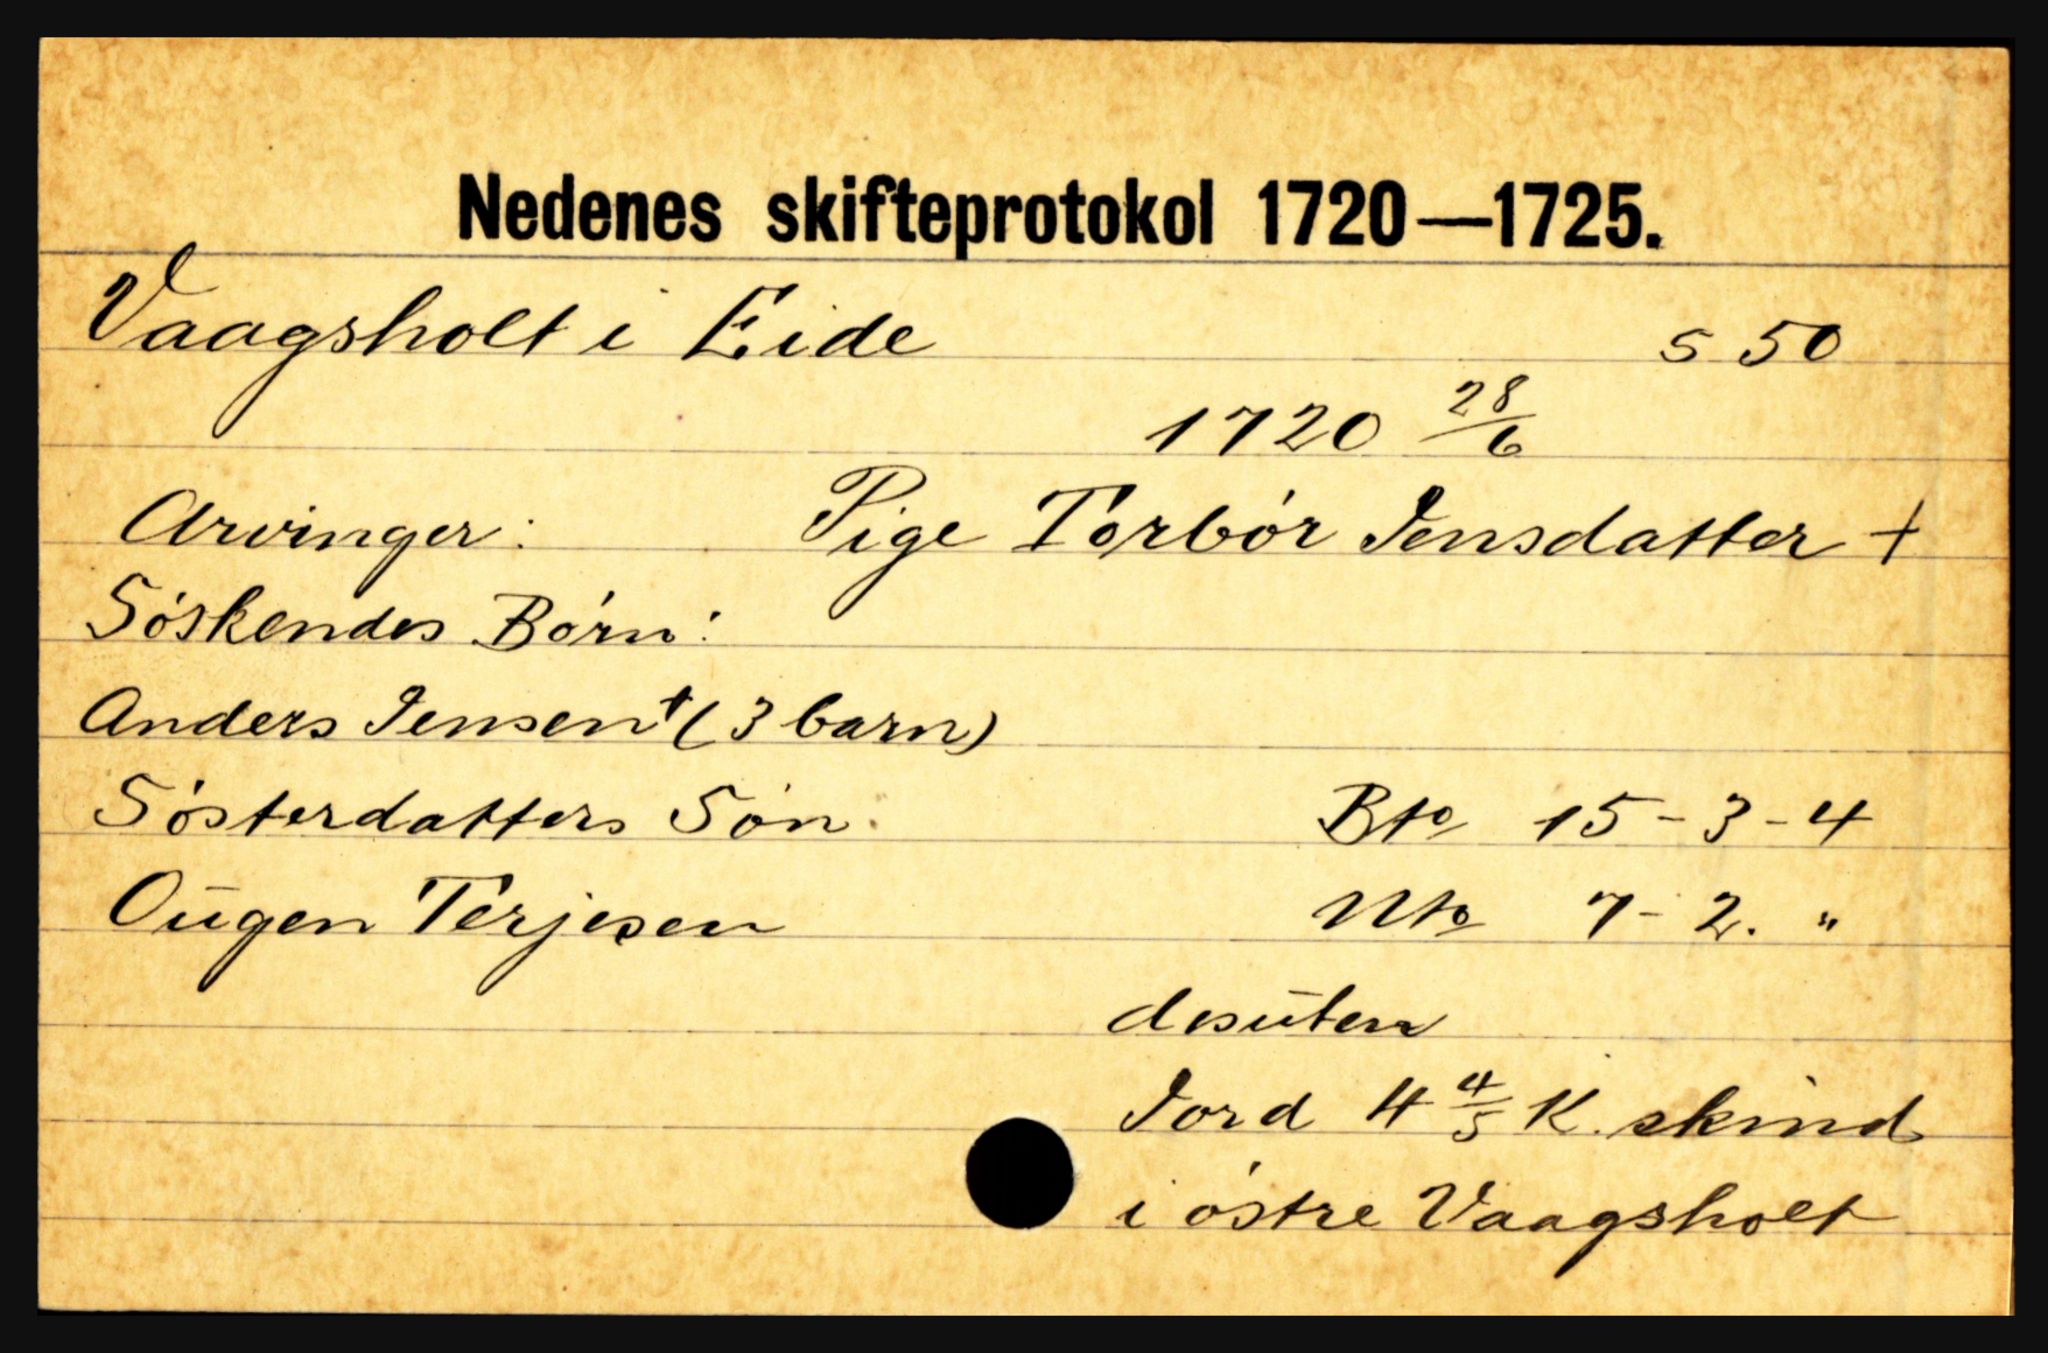 Nedenes skifteprotokol 1720—1725.
Vaagsholt i Eide s 50
1720 28/6
Arvinger: Pige Torbór Jensdatter +
Sóskendes Bórn:
Anders Jensen + (3 barn)
Sósterdatters Són. Bto 15-3-4
Oūgen Terjesen Nto 7-2. "
desūten
Jord 4 4/5 K. skind
i óstre Vaagsholt